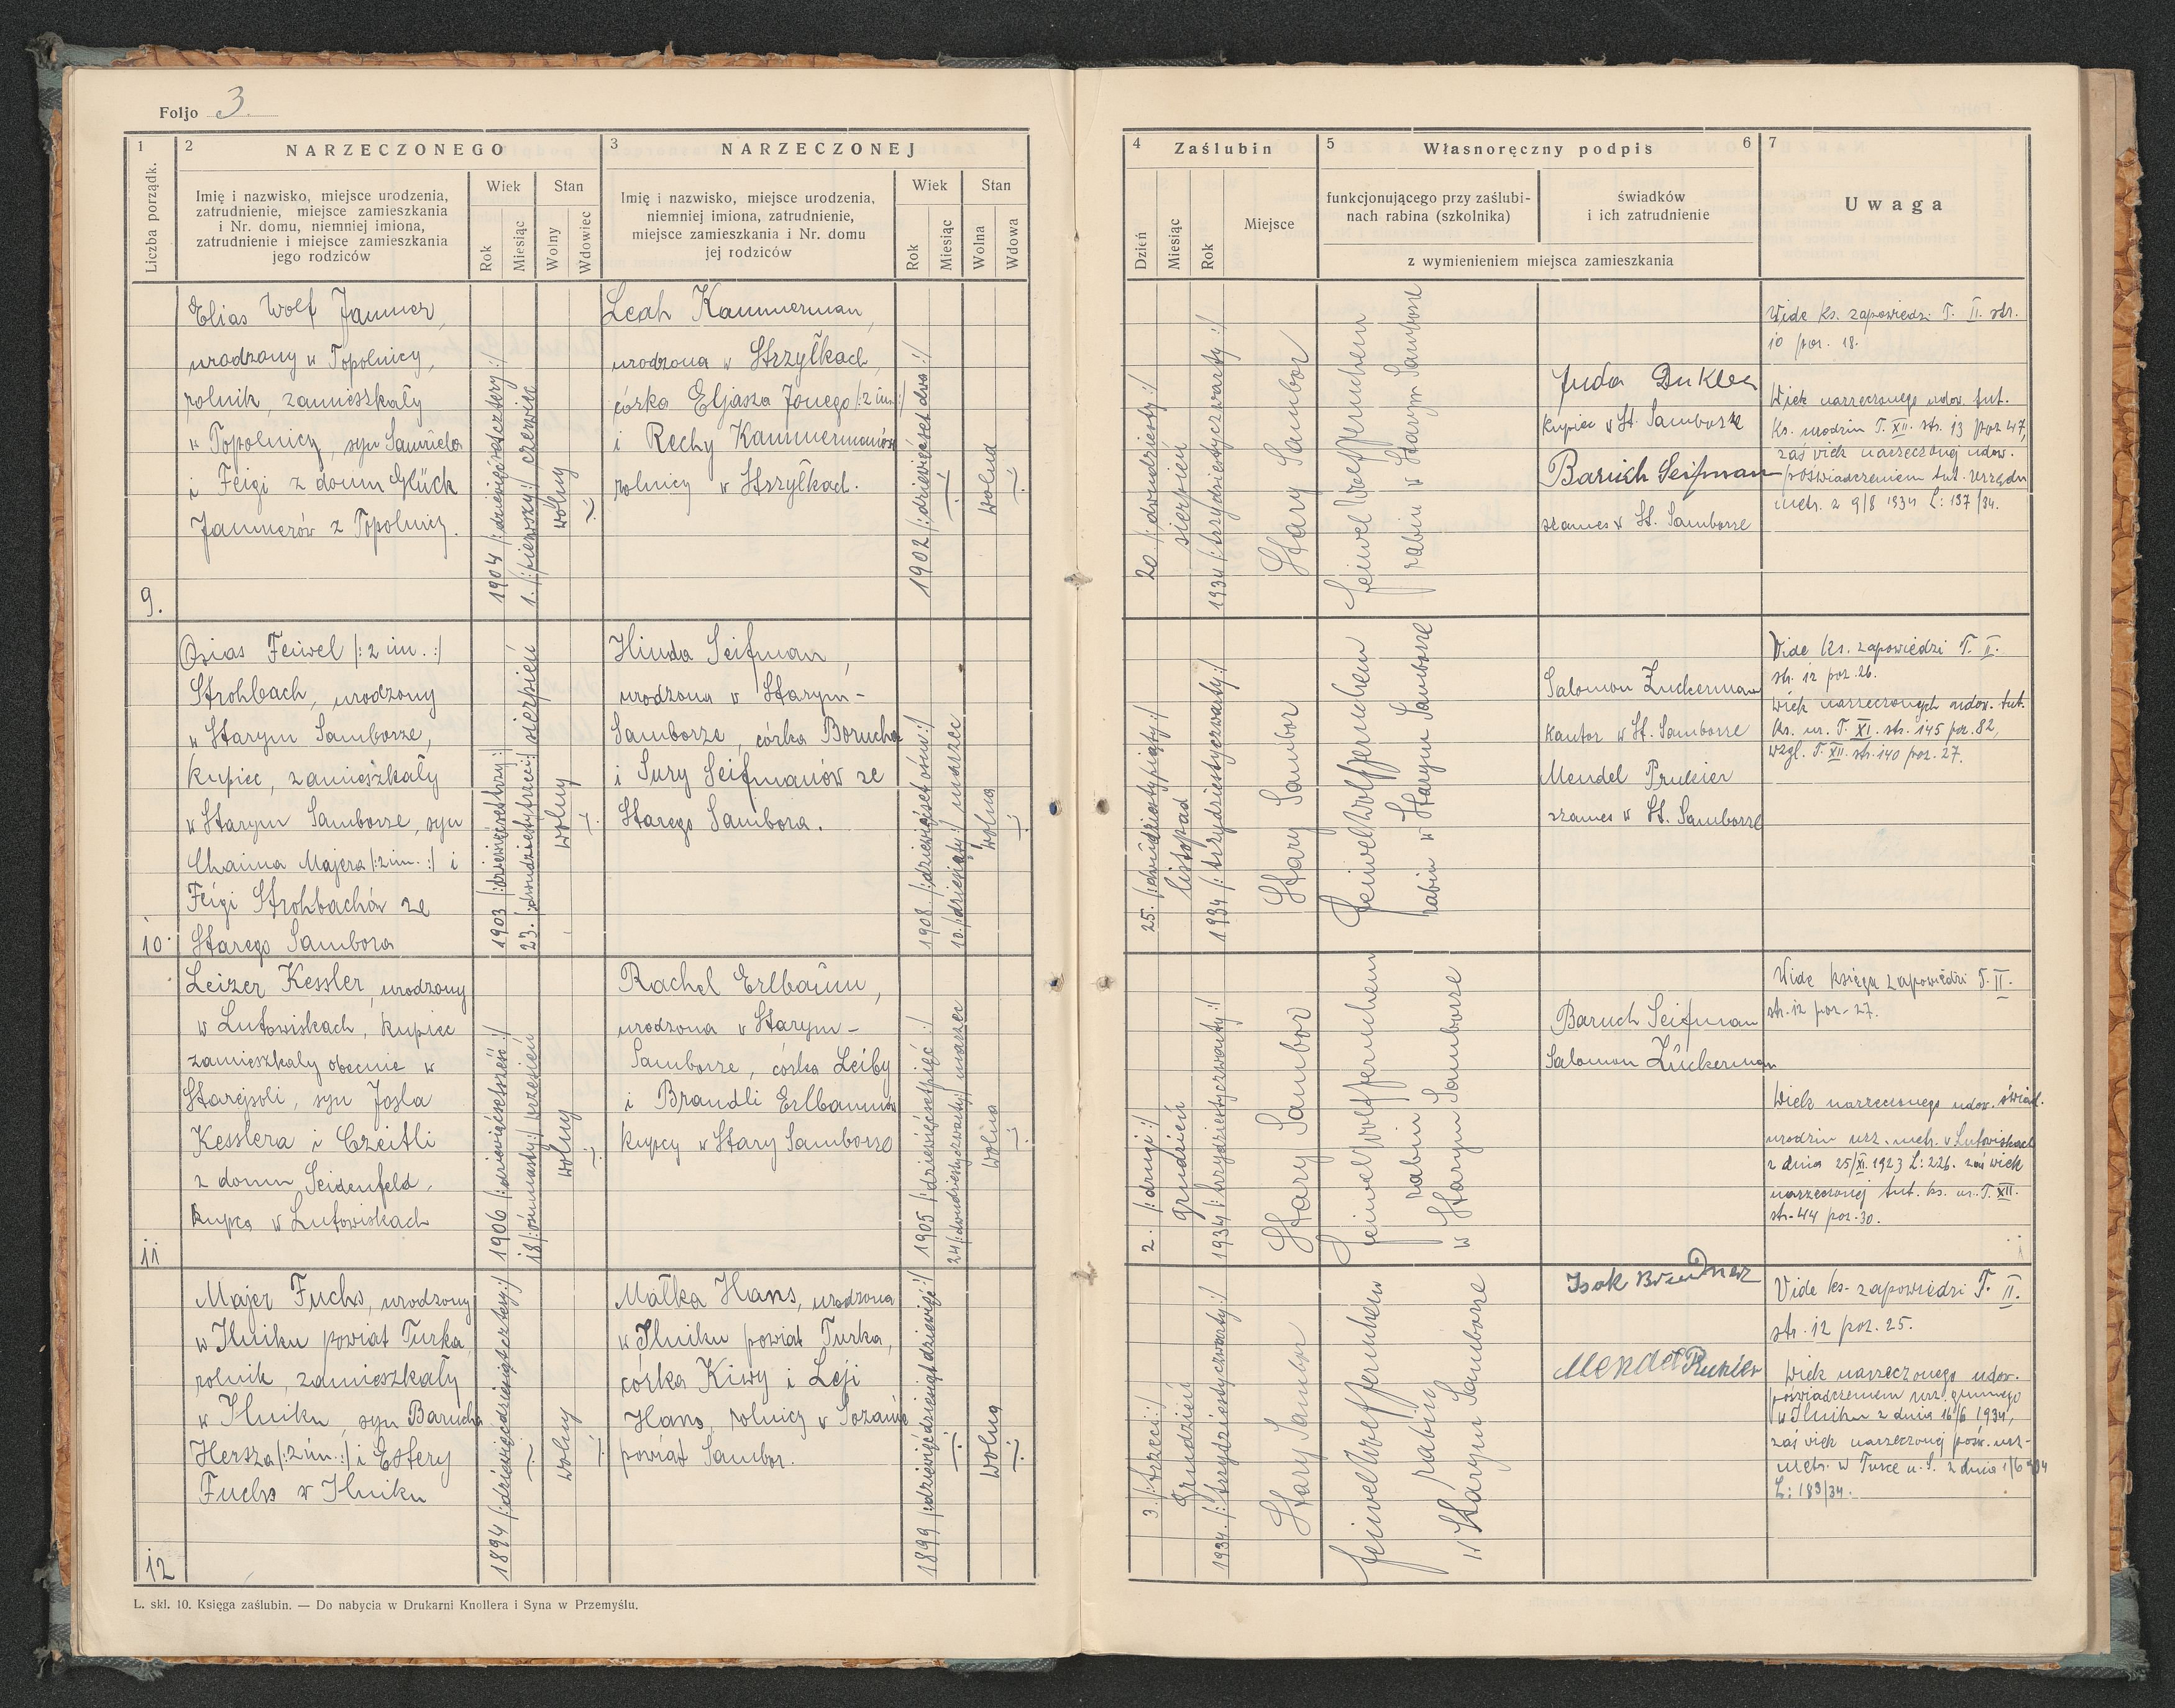 Foljo 3
1
Liczba porządk.
2 NARZECZONEGO
Imię i nazwisko, miejsce urodzenia,
zatrudnienie, miejsce zamieszkania
i Nr. domu, niemniej imiona,
zatrudnienie i miejsce zamieszkania
jego rodziców
Wiek
Rok
Miesiąc
Stan
Wolny
Wdowiec
3 NARZECZONEJ
Imię i nazwisko, miejsce urodzenia,
niemniej imiona, zatrudnienie,
miejsce zamieszkania i Nr. domu
jej rodziców
Wiek
Rok
Miesiąc
Stan
Wolna
Wdowa
4 Zaślubin
Dzień
Miesiąc
Rok
Miejsce
5 Własnoręczny podpis 6
funkcjonującego przy zaślubi-
nach rabina (szkolnika)
świadków
i ich zatrudnienie
z wymienieniem miejsca zamieszkania
7
Uwaga
9.
Elias Wolf Jammer,
urodzony w Topolnicy,
rolnik, zamieszkały
w Topolnicy, syn Samuela
i Feigi z domu Glück
Jammerów z Topolnicy.
1904 /:dziewięćsetcztery:/
1. /:pierwszy:/ czerwiec
wolny
Leah Kammerman,
urodzona w Strzyłkach,
córka Eljasza Jonego /:2 im:/
i Rechy Kammermanów
rolnicy w Strzyłkach.
1902 /:dziewięćset dwa:/
wolna
20 /:dwudziesty:/
sierpień
1934 /:trzydziestyczwarty:/
Stary Sambor
Feiwel Wolf
rabin w Starym Samborze
Juda Dukler
kupiec w St. Samborze
Baruch Seifman
szames w St. Samborze
Vide ks. zapowiedzi T. II. str.
10 poz. 18.
Wiek narzeczonego udow. tut.
ks. urodzin T. XII. str. 13 poz 47,
zaś wiek narzeczonej udow.
poświadczeniem tut. urzędu
metr. z 9/8 1934 L: 197/34.
10.
Osias Feiwel /:2 im.:/
Strohbach, urodzony
w Starym Samborze,
kupiec, zamieszkały
w Starym Samborze, syn
Chaima Majera /:2 im.:/ i
Feigi Strohbachów ze
Starego Sambora
1903 /:dziewięćsettrzy:/
23. /:dwudziestytrzeci:/ sierpień
wolny
Hinda Seifman,
urodzona w Starym-
Samborze, córka Borucha
i Sury Seifmanów ze
Starego Sambora.
1908. /:dziewięćset ósm:/
10. /:dziesiąty:/ marzec
wolna
25. /:dwudziestypiąty:/
listopad
1934 /:trzydziestyczwarty:/
Stary Sambor
Feiwel Wolf
rabin w Starym Samborze
Salomon Zuckerman
kantor w St. Samborze
Mendel Prukier
szames w St. Samborze
Vide ks. zapowiedzi T. II.
str. 12 poz. 26.
Wiek narzeczonych udow. tut.
ks. ur. T. XI. str. 145 poz. 82,
wzgl. T. XII. str. 140 poz. 27.
11
Leizer Kessler, urodzony
w Lutowiskach, kupiec
zamieszkały obecnie w
Starejsoli, syn Josla
Kesslera i Czeitli
z domu Seidenfeld,
kupca w Lutowiskach
1906 /:dziewięćsetsześć:/
18 /:ósmnasty:/ wrzesień
wolny
Rachel Erlbaum,
urodzona w Starym-
Samborze, córka Leiby
i Brandli Erlbaumów
kupcy w Stary Samborze
1905 /:dziewięćsetpięć:/
24 /:dwudziestyczwarty:/ marzec
wolna
2. /:drugi:/
grudzień
1934 /:trzydziestyczwarty:/
Stary Sambor
Feiwel Wolf
rabin
w Starym Samborze
Baruch Seifman
Salomon Zuckerman
Vide księga zapowiedzi T. II.
str. 12 poz. 27.
Wiek narzeczonego udow. świad.
urodzin urz. metr. w Lutowiskach
z dnia 25/XI. 1923 L: 226. zaś wiek
narzeczonej tut. ks. ur. T. XII.
str. 44 poz. 30.
12
Majer Fuchs, urodzony
w Ilniku powiat Turka,
rolnik, zamieszkały
w Ilniku, syn Barucha
Hersza /:2 im.:/ i Estery
Fuchs w Ilniku
1894 /:dziewięćdziesiątcztery:/
wolny
Małka Hans, urodzona
w Ilniku powiat Turka,
córka Kiwy i Leji
Hans, rolnicy w Sozaniu
powiat Sambor.
1899 /:dziewięćdziesiątdziewięć:/
wolna
3. /:trzeci:/
Grudzień
1934. /:trzydziestyczwarty:/
Stary Sambor
Feiwel Wolf
rabin
w Starym Samborze
Isak
Mendel Prukier
Vide ks. zapowiedzi T. II.
str. 12 poz. 25.
Wiek narzeczonego udow.
poświadczeniem urz. gminnego
w Ilniku z dnia 16/6 1934,
zaś wiek narzeczonej pośw. urz.
metr. w Turce n. S. z dnia 1/6 934
L: 189/34.
L. skl. 10. Księga zaślubin. — Do nabycia w Drukarni Knollera i Syna w Przemyślu.